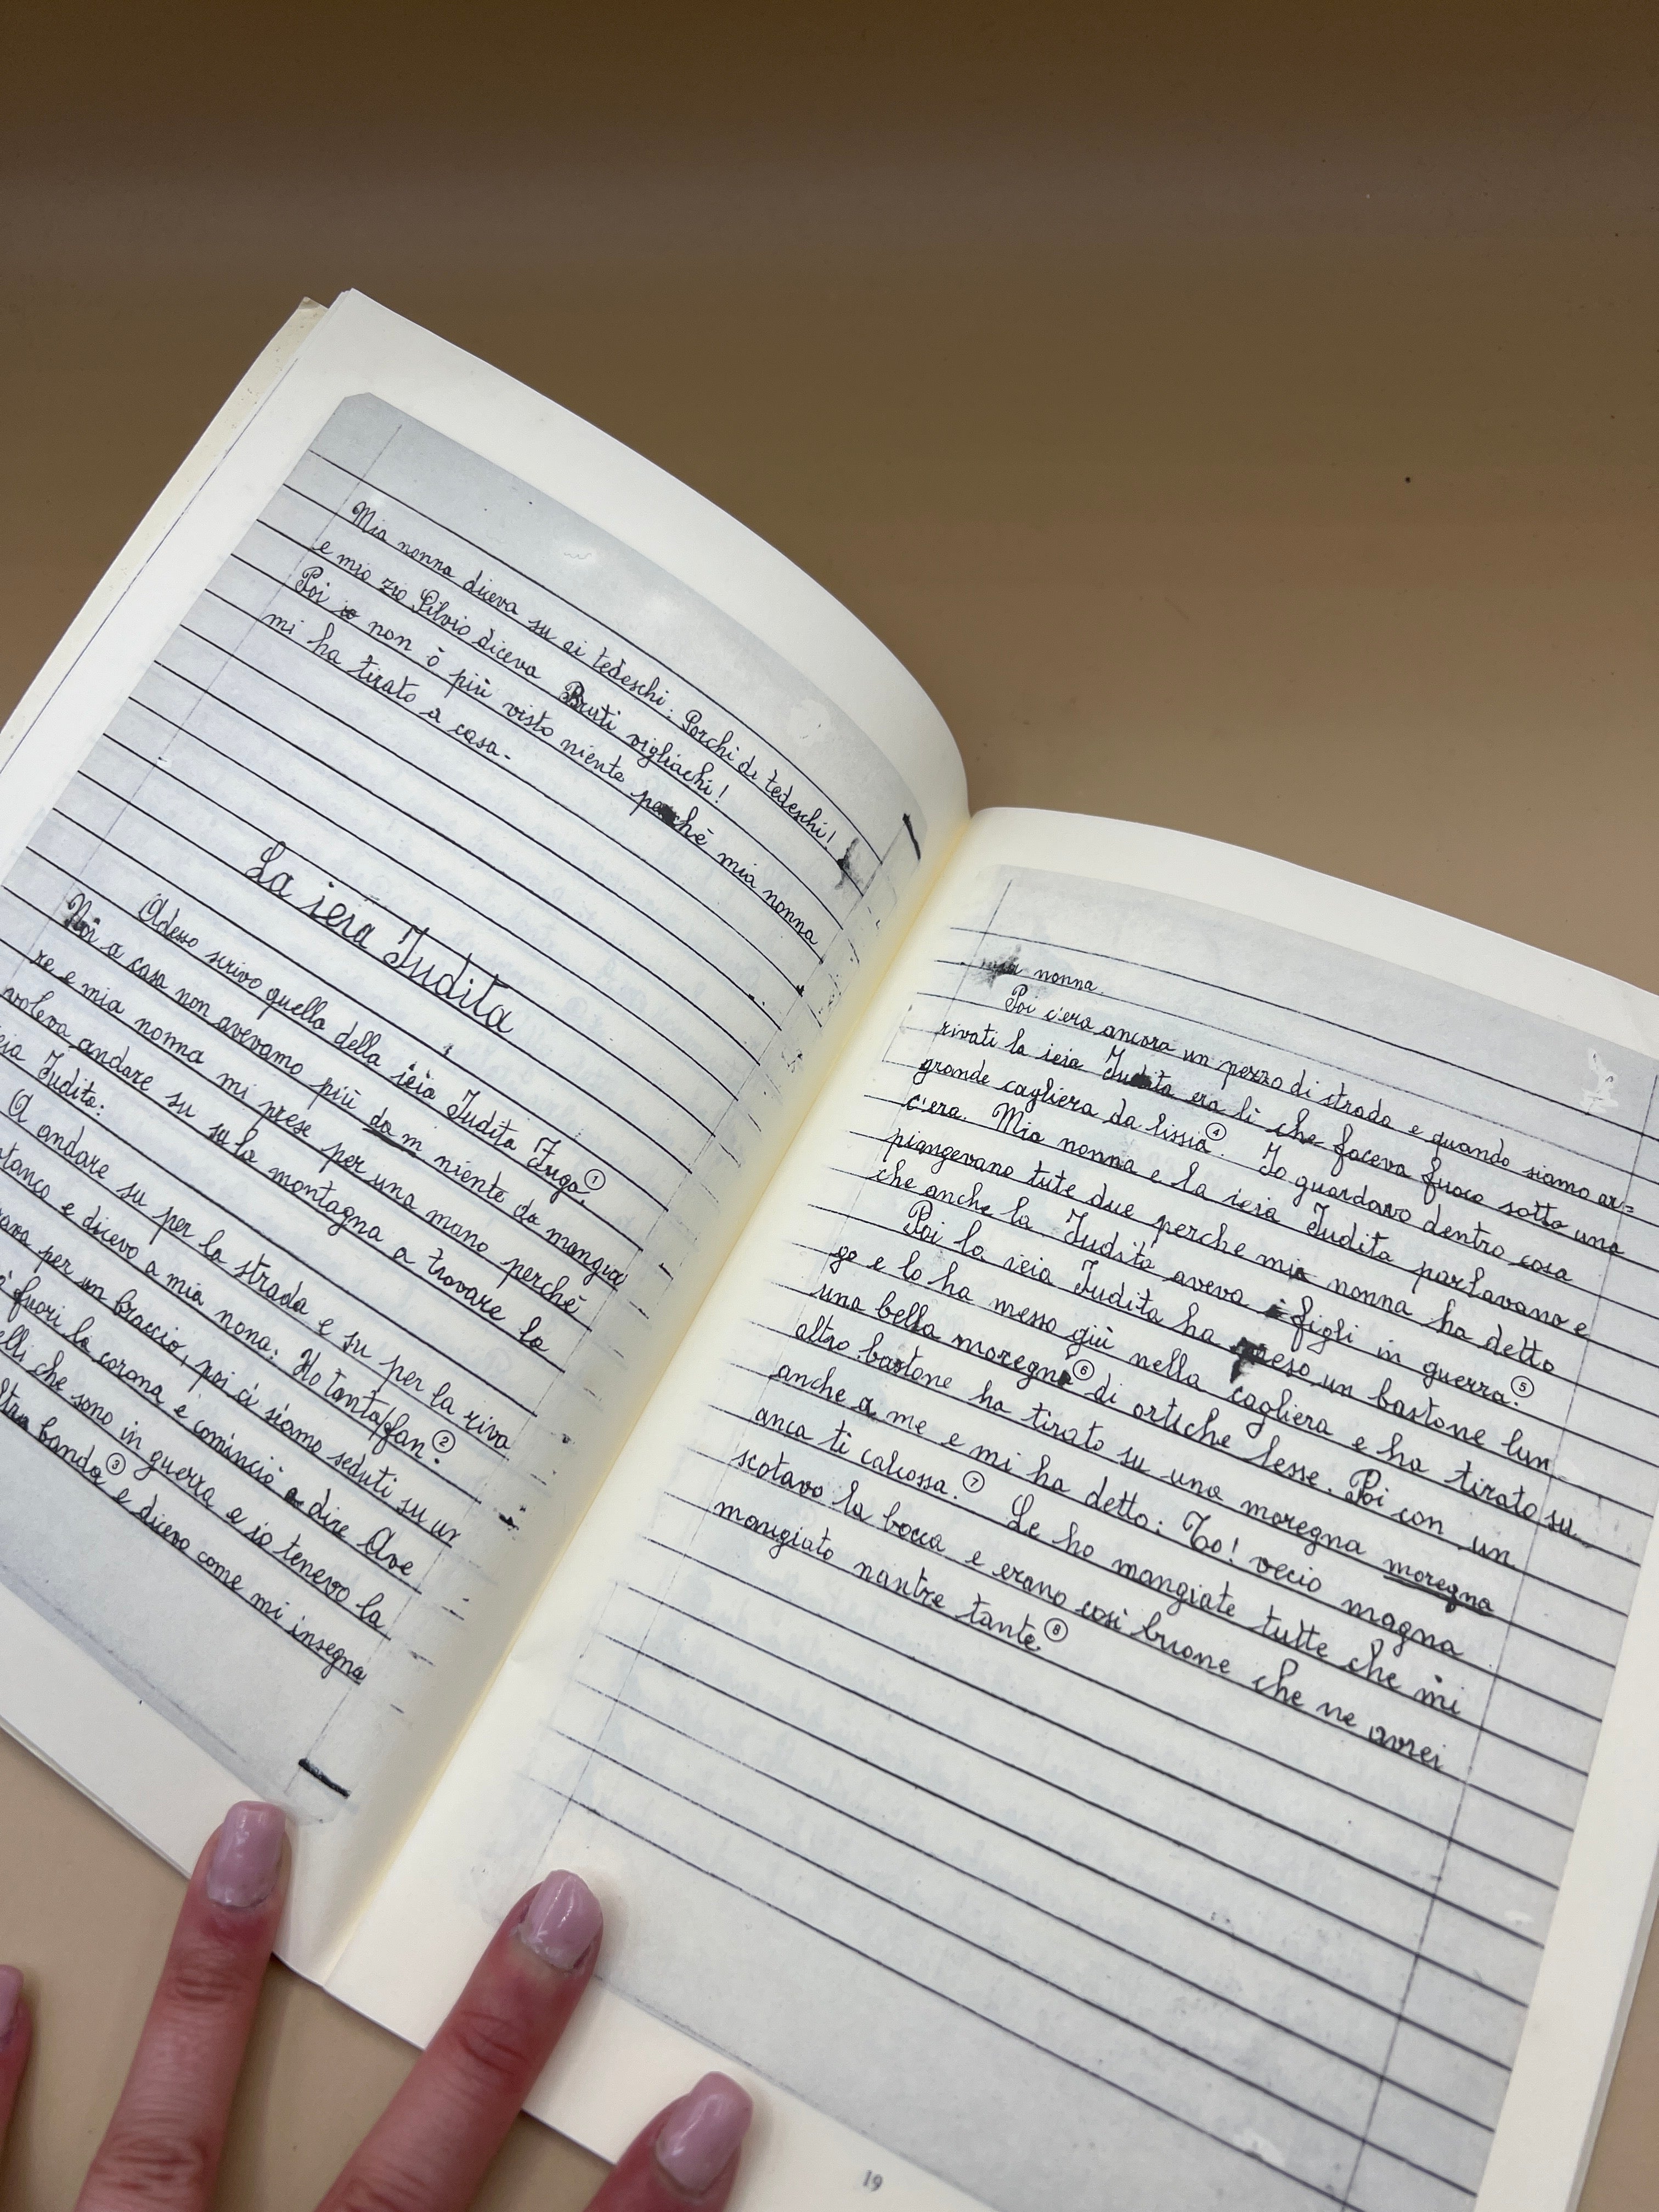 Mia nonna diceva su ai tedeschi: Porchi di tedeschi!
e mio zio Silvio diceva Bruti vigliachi!
Poi io non ò più visto niente perchè mia nonna
mi ha tirato a casa-
La ieia Iudita
Adesso scrivo quello della ieia Iudita Fuga①.
Noi a casa non avevamo più da m niente da mangia
re e mia nonna mi prese per una mano perchè
voleva andare su su la montagna a trovare la
ieia Iudita:
A andare su per la strada e su per la riva
stanco e dicevo a mia nona: Ho tanta fan②.
per un braccio, poi ci siamo seduti su un
fuori la corona e cominciò a dire Ave
che sono in guerra e io tenevo la
banda③ e dicevo come mi insegna
nonna.
Poi c'era ancora un pezzo di strada e quando siamo ar=
rivati la ieia Iudita era li che faceva fuoco sotto una
grande cagliera da lissia④. Io guardavo dentro cosa
c'era. Mia nonna e la ieia Iudita parlavano e
piangevano tute due perche mia nonna ha detto
che anche la Iudita aveva i figli in guerra.⑤
Poi la ieia Iudita ha preso un bastone lun-
go e lo ha messo giù nella cagliera e ha tirato su
una bella moregna⑥ di ortiche lesse. Poi con un
altro bastone ha tirato su una moregna moregna
anche a me e mi ha detto: To! vecio magna
anca ti calcossa.⑦ Le ho mangiate tutte che mi
scotavo la bocca e erano così buone che ne avrei
mangiato nantre tante.⑧
19